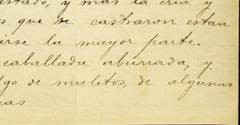 y mas la cria y
que se castraron estan
irse la mayor parte.
caballada aburrada, y
lgo de muletos, de algunas
cas